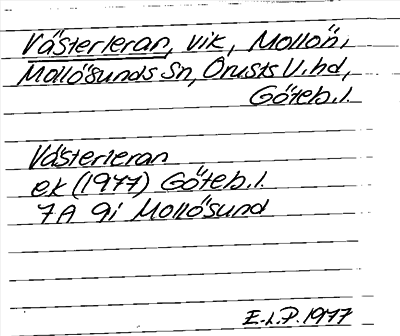 Västerleran, vik, Mollön,
Mollösunds Sn, Orusts V. hd,
Göteb. l.
Västerleran
ek (1977) Göteb. l.
7A 9i Mollösund
E.L.P. 1977